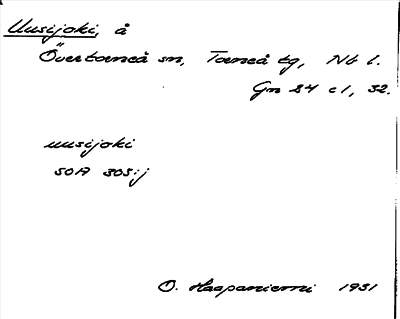 Uusijoki, å
Övertorneå sn, Torneå tg, Nb l.
Gn 24 c1, 32.
uusijoki
SOA 303ij
O. Haapaniemi 1931